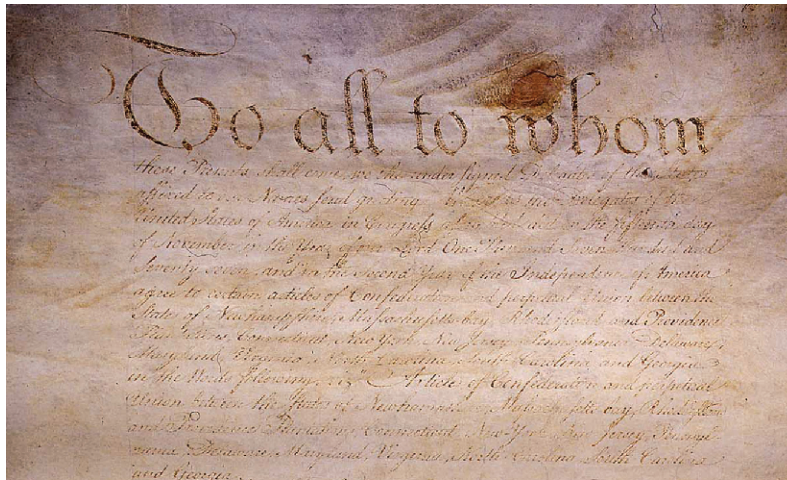 To all to whom
these Presents shall come, we the under signed Delegates of the States
affixed to our Names send greeting. Whereas the Delegates of the
United States of America in Congress assembled did on the fifteenth day
of November in the Year of our Lord One Thousand Seven Hundred and
Seventy seven, and in the Second Year of the Independence of America
agree to certain articles of Confederation and perpetual Union between the
States of Newhampshire, Massachusetts-bay, Rhodeisland and Providence
Plantations, Connecticut, New York, New Jersey, Pennsylvania, Delaware,
Maryland, Virginia, North-Carolina, South-Carolina and Georgia
in the Words following, viz. Articles of Confederation and perpetual
Union between the States of Newhampshire, Massachusetts-bay, Rhodeisland
and Providence Plantations, Connecticut, New-York, New-Jersey, Pennsyl-
vania, Delaware, Maryland, Virginia, North-Carolina, South-Carolina
and Georgia.